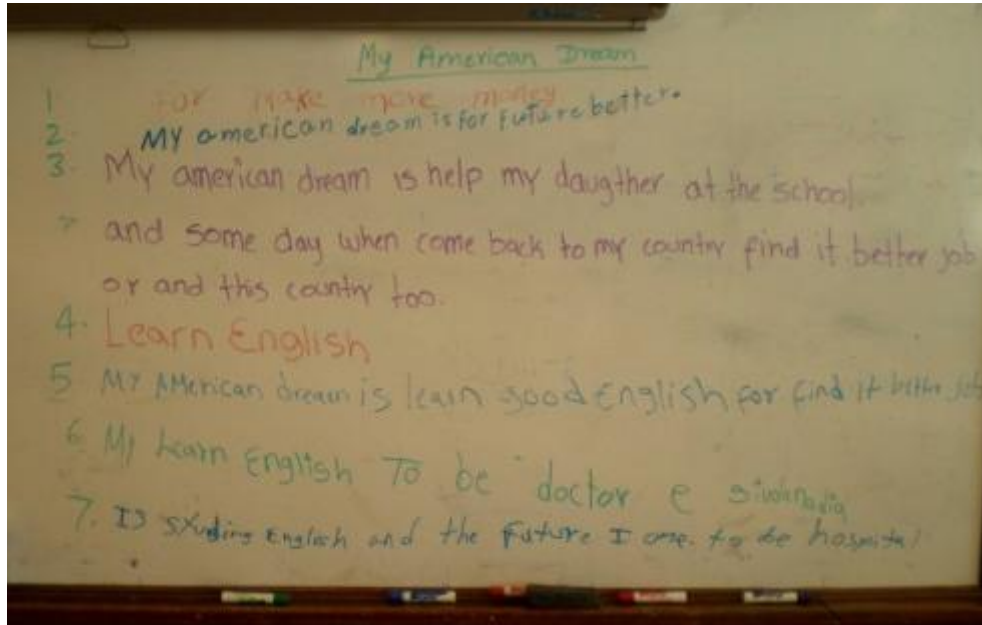 My American Dream
1 For make more money
2. MY american dream is for future better.
3. My american dream is help my daugther at the school.
and some day when come back to my country find it better job
or and this country too.
4. Learn English
5 My AMerican dream is learn good English for find it better job
6. My Learn English To be doctor e
7. IS studing English and the Future I to be hospital